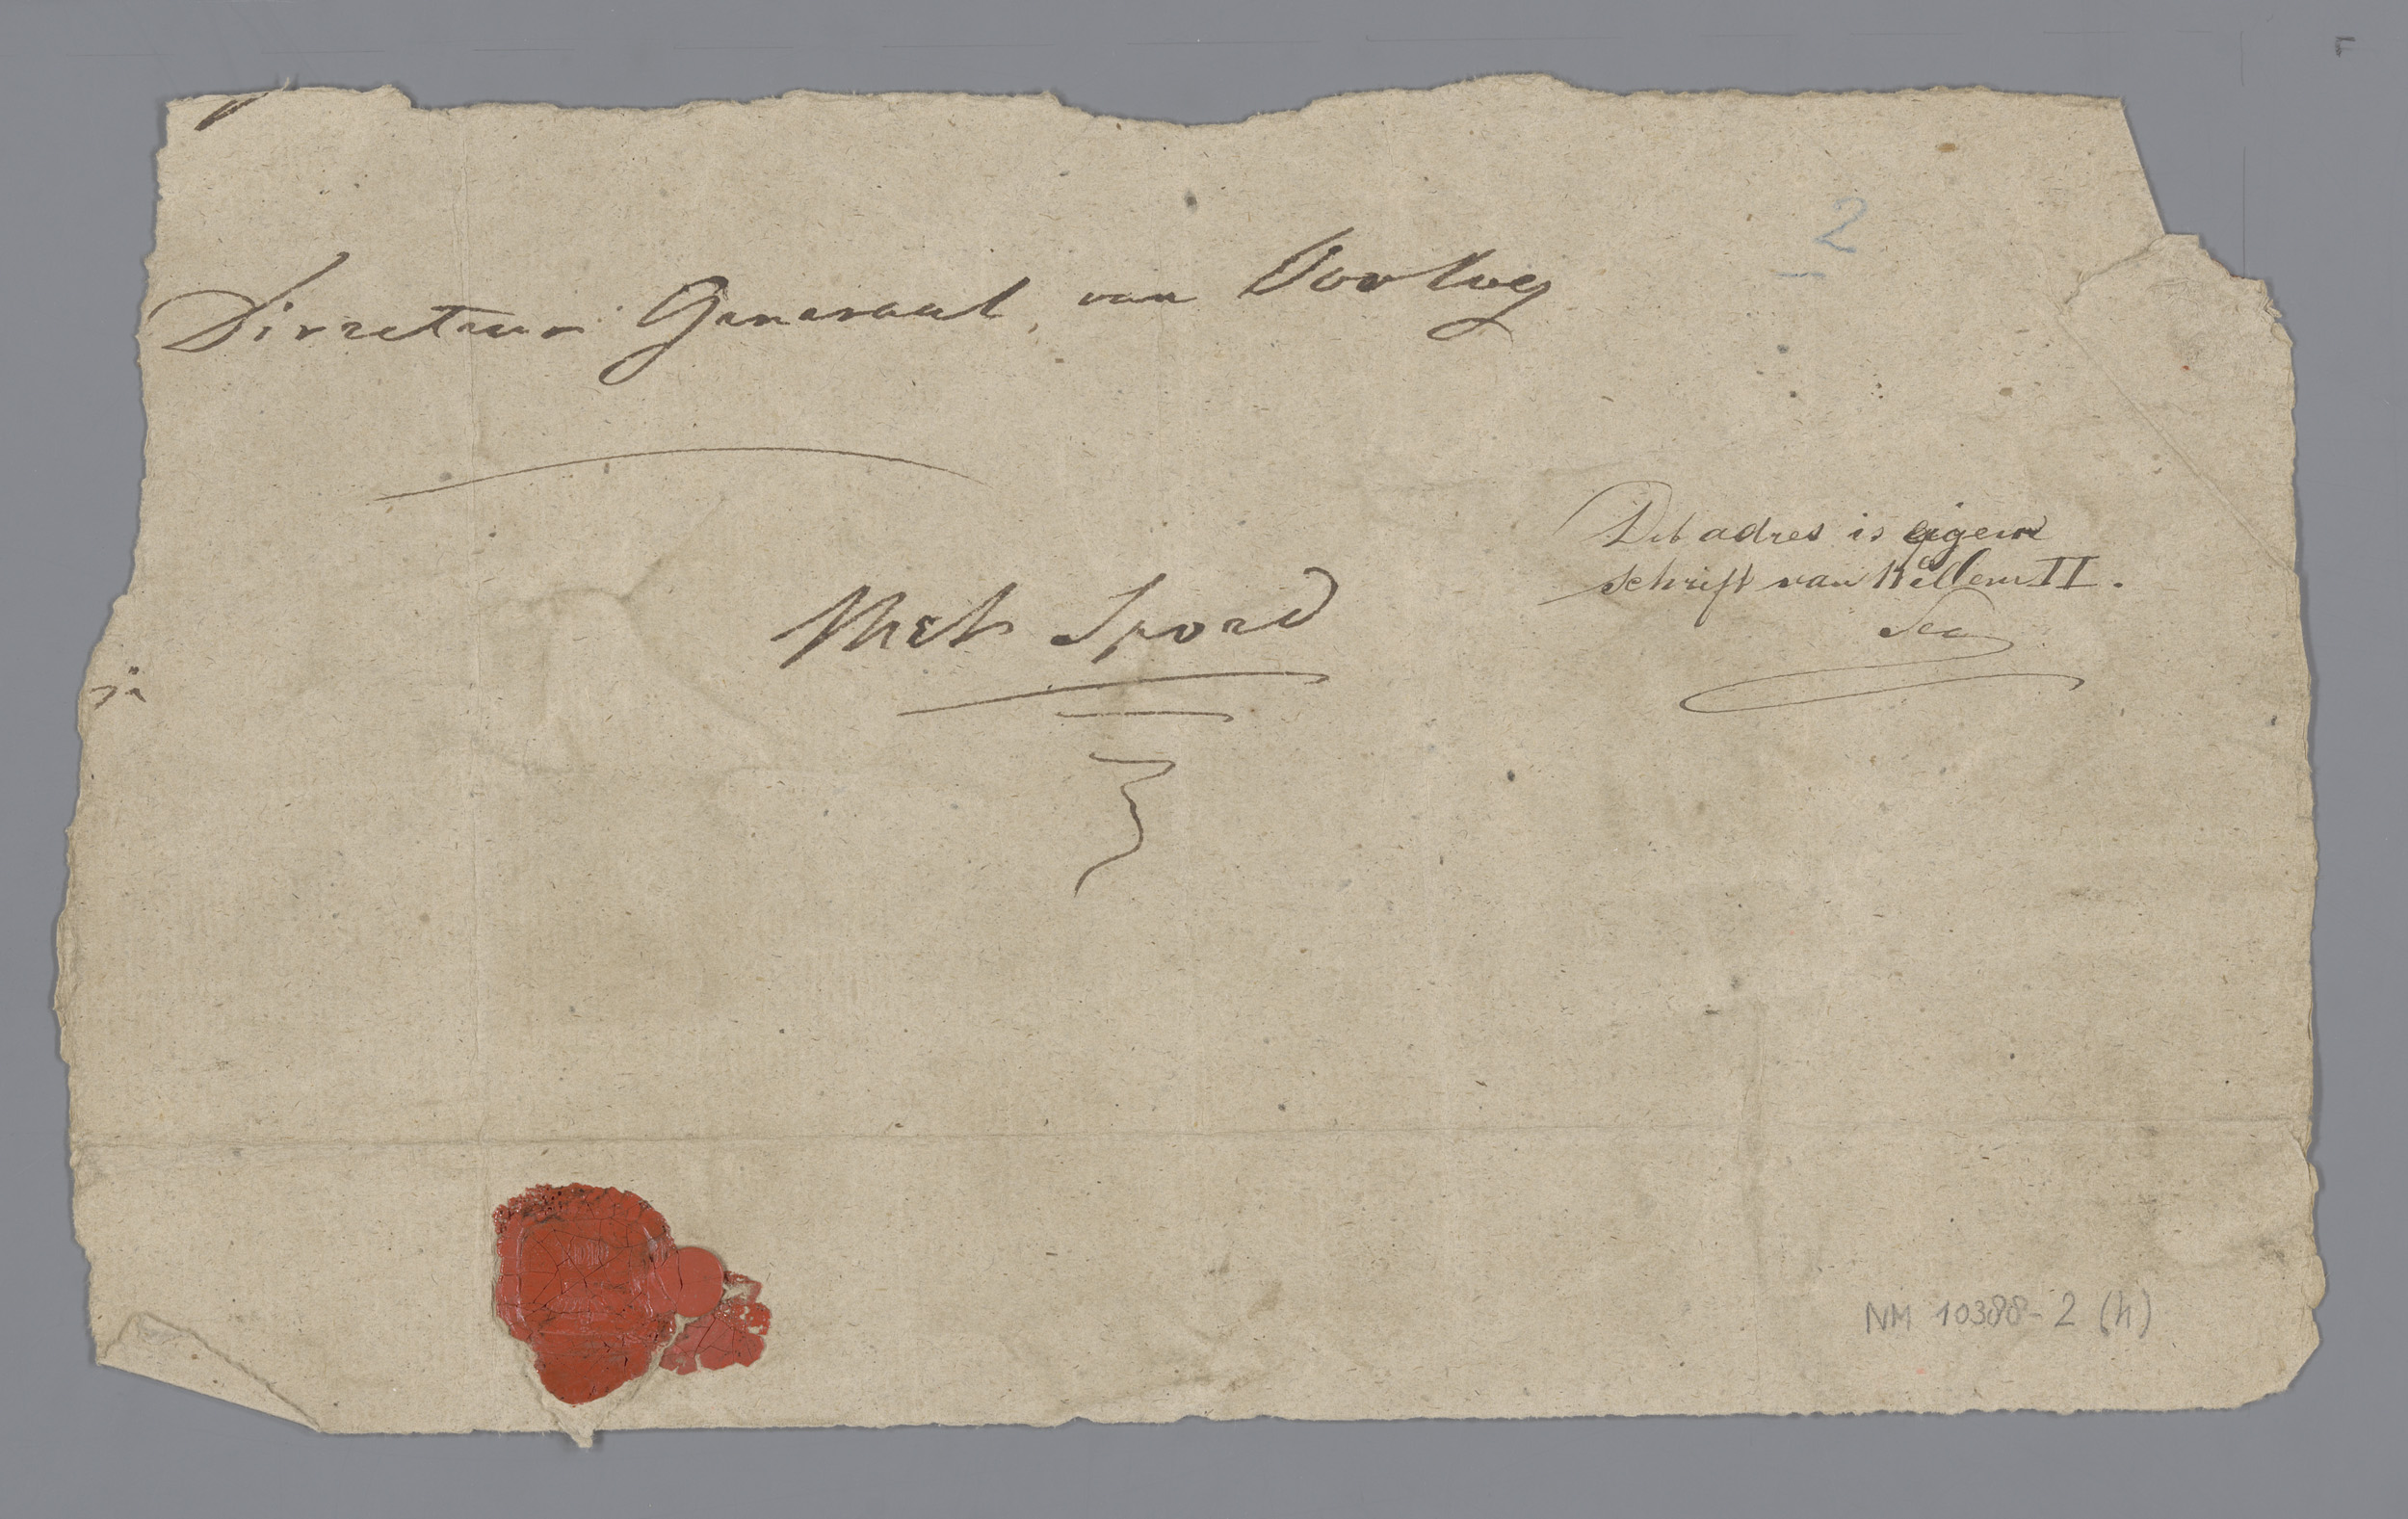 2
Directeur Generaal van Oorlog
Dit adres is eigen
schrift van Willem II.
Met Spoed
NM 10388-2 (h)